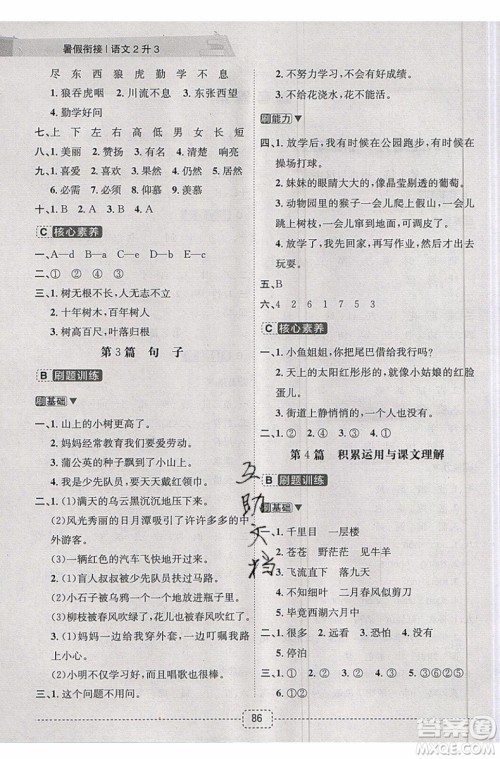 暑假衔接 | 语文2升3
尽 东 西 狼 虎 勤 学 不 息
1. 狼吞虎咽 2. 川流不息 3. 东张西望
4. 勤学好问
七、上 下 左 右 高 低 男 女 长 短
八、1. 美丽 2. 赞扬 3. 著名 4. 著名
九、1. 喜爱 2. 喜欢 3. 仍然 4. 依然
5. 必需 6. 必须
十、1. ② 2. ③ 3. ① 4. ④
C 核心素养
一、A—d B—c C—b D—a
二、① ② ④ ③
三、1. 树无根不长，人无志不立
2. 十年树木，百年树人
3. 树高百尺，叶落归根
第3篇 句 子
B 刷题训练
刷基础
一、1. 山上的小树更高了。
2. 妈妈经常教育我们要遵守规则。
3. 蒲公英的种子飘到山坡上。
4. 我是少先队员，我光荣。
二、1. (1)满天的乌云黑沉沉地压下来。
(2)风光秀丽的日月潭吸引了许许多多的中
外游客。
(3)一辆红色的汽车飞快地开过来。
2. (1)盲人被少先队员扶过马路。
(2)小石子被乌鸦一个一个地放进瓶子里。
(3)柳枝被春风吹绿了，桃花被春风吹红了。
3. (1)妈妈一边给我穿外套，一边叮嘱我。
(2)不但学习好，而且唱歌也很棒。
三、1. 这个问题不用问。
2. 不努力学习不会有好成绩。
3. 不给花浇水，花不能活。
刷能力
四、1. 放学后，我有时候在公园跑步，有时候在
操场打球。
2. 妹妹的眼睛大大的，好像晶莹剔透的玻璃球。
3. 动物园里的小猴子一会儿爬上假山，一会儿
跳上树枝，一会儿穿过草地。
4. 放学了，我一走出校门，就看到爸爸。
五、③ ② ④ ①
六、4 2 6 1 3 5
C 核心素养
一、1. 小鱼姐姐，你用尾巴帮帮我吧！
2. 天上的太阳红彤彤的，像妹妹红红的脸
蛋儿。
3. 街道上静悄悄的，一个行人也没有。
第4篇 积累运用与课文理解
B 刷题训练
刷基础
一、1. 千里目 一层楼
2. 苍苍 野茫茫 见牛羊
3. 飞流直下 落九天
4. 不知细叶谁裁出 二月春风似剪刀
5. 毕竟西湖六月中
二、1. 很多 2. 依然 3. 停止
三、1. ① 2. ② 3. ① 4. ② ③ 5. ② ①
四、1. 停泊
互助文档
86
答案圈
MXQE.COM